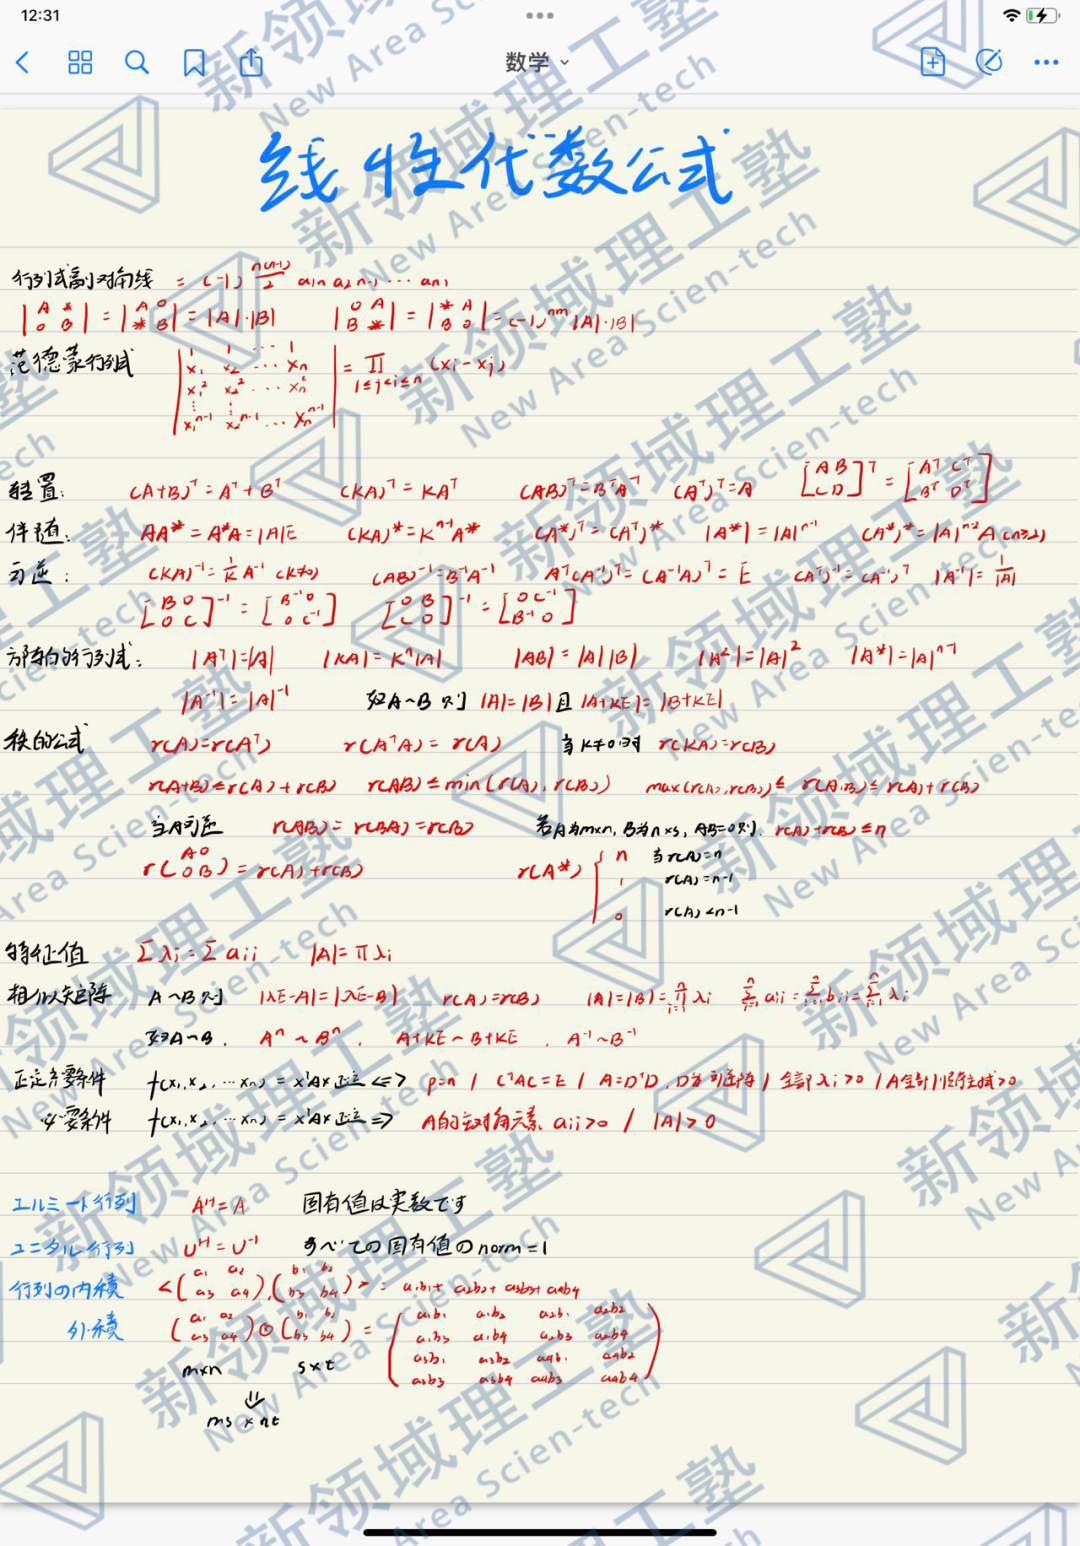 12:31
数学
线性代数公式
行列式副对角线 = (-1)^{\frac{n(n-1)}{2}} a_{1n} a_{2n-1} ⋯ a_{n1}
|A * ; O B| = |A O ; * B| = |A|·|B|  |O A ; B *| = |* A ; B O| = (-1)^{nm} |A|·|B|
范德蒙行列式 |1 1 ⋯ 1 ; x_1 x_2 ⋯ x_n ; x_1^2 x_2^2 ⋯ x_n^2 ; ⋮ ⋮ ; x_1^{n-1} x_2^{n-1} ⋯ x_n^{n-1}| = ∏_{1≤j<i≤n} (x_i - x_j)
转置: (A+B)^T = A^T + B^T  (KA)^T = KA^T  (AB)^T = B^T A^T  (A^T)^T = A  [A B ; C D]^T = [A^T C^T ; B^T D^T]
伴随: AA* = A*A = |A|E  (KA)* = K^{n-1}A*  (A*)^T = (A^T)*  |A*| = |A|^{n-1}  (A*)* = |A|^{n-2}A (n≥2)
可逆: (KA)^{-1} = \frac{1}{K} A^{-1} (K≠0)  (AB)^{-1} = B^{-1}A^{-1}  A^T(A^{-1})^T = (A^{-1}A)^T = E  (A^T)^{-1} = (A^{-1})^T  |A^{-1}| = \frac{1}{|A|}
[B O ; O C]^{-1} = [B^{-1} O ; O C^{-1}]  [O B ; C O]^{-1} = [O C^{-1} ; B^{-1} O]
方阵的行列式: |A^T| = |A|  |KA| = K^n|A|  |AB| = |A||B|  |A^2| = |A|^2  |A*| = |A|^{n-1}
|A^{-1}| = |A|^{-1}  如A~B 则 |A| = |B| 且 |A+KE| = |B+KE|
秩的公式 r(A) = r(A^T)  r(A^TA) = r(A)  当K≠0时 r(KA) = r(B)
r(A+B) ≤ r(A) + r(B)  r(AB) ≤ min(r(A), r(B))  max(r(A), r(B)) ≤ r(A,B) ≤ r(A) + r(B)
当A可逆 r(AB) = r(BA) = r(B)  若A为m×n, B为n×s, AB=0则, r(A)+r(B) ≤ n
r(A O ; O B) = r(A) + r(B)  r(A*) { n 当r(A)=n
1 r(A)=n-1
0 r(A)<n-1
特征值 Σλ_i = Σa_{ii}  |A| = πλ_i
相似矩阵 A~B 则 |λE-A| = |λE-B|  r(A) = r(B)  |A| = |B| = ∏_{i=1}^{n} λ_i  Σ_{i=1}^{n} a_{ii} = Σ_{i=1}^{n} b_{ii} = Σ_{i=1}^{n} λ_i
如A~B, A^n ~ B^n, A+KE ~ B+KE, A^{-1} ~ B^{-1}
正定充要条件 f(x_1, x_2, ⋯ x_n) = x^TAx 正定 <=> p=n / C^TAC = E / A = D^TD, D为可逆阵 / 全部λ_i>0 / A全部顺序主式>0
必要条件 f(x_1, x_2, ⋯ x_n) = x^TAx 正定 => A的主对角元素 a_{ii}>0 / |A|>0
エルミート行列 A^H = A 固有値は実数です
ユニタル行列 U^H = U^{-1} すべての固有値のnorm=1
行列の内積 <(a_1 a_2 ; a_3 a_4), (b_1 b_2 ; b_3 b_4)> = a_1b_1 + a_2b_2 + a_3b_3 + a_4b_4
外積 (a_1 a_2 ; a_3 a_4) ⊙ (b_1 b_2 ; b_3 b_4) = (a_1b_1 a_1b_2 a_2b_1 a_2b_2 ; a_1b_3 a_1b_4 a_2b_3 a_2b_4 ; a_3b_1 a_3b_2 a_4b_1 a_4b_2 ; a_3b_3 a_3b_4 a_4b_3 a_4b_4)
m×n s×t
⇓
ms × nt
新领域理工塾
New Area Scien-tech